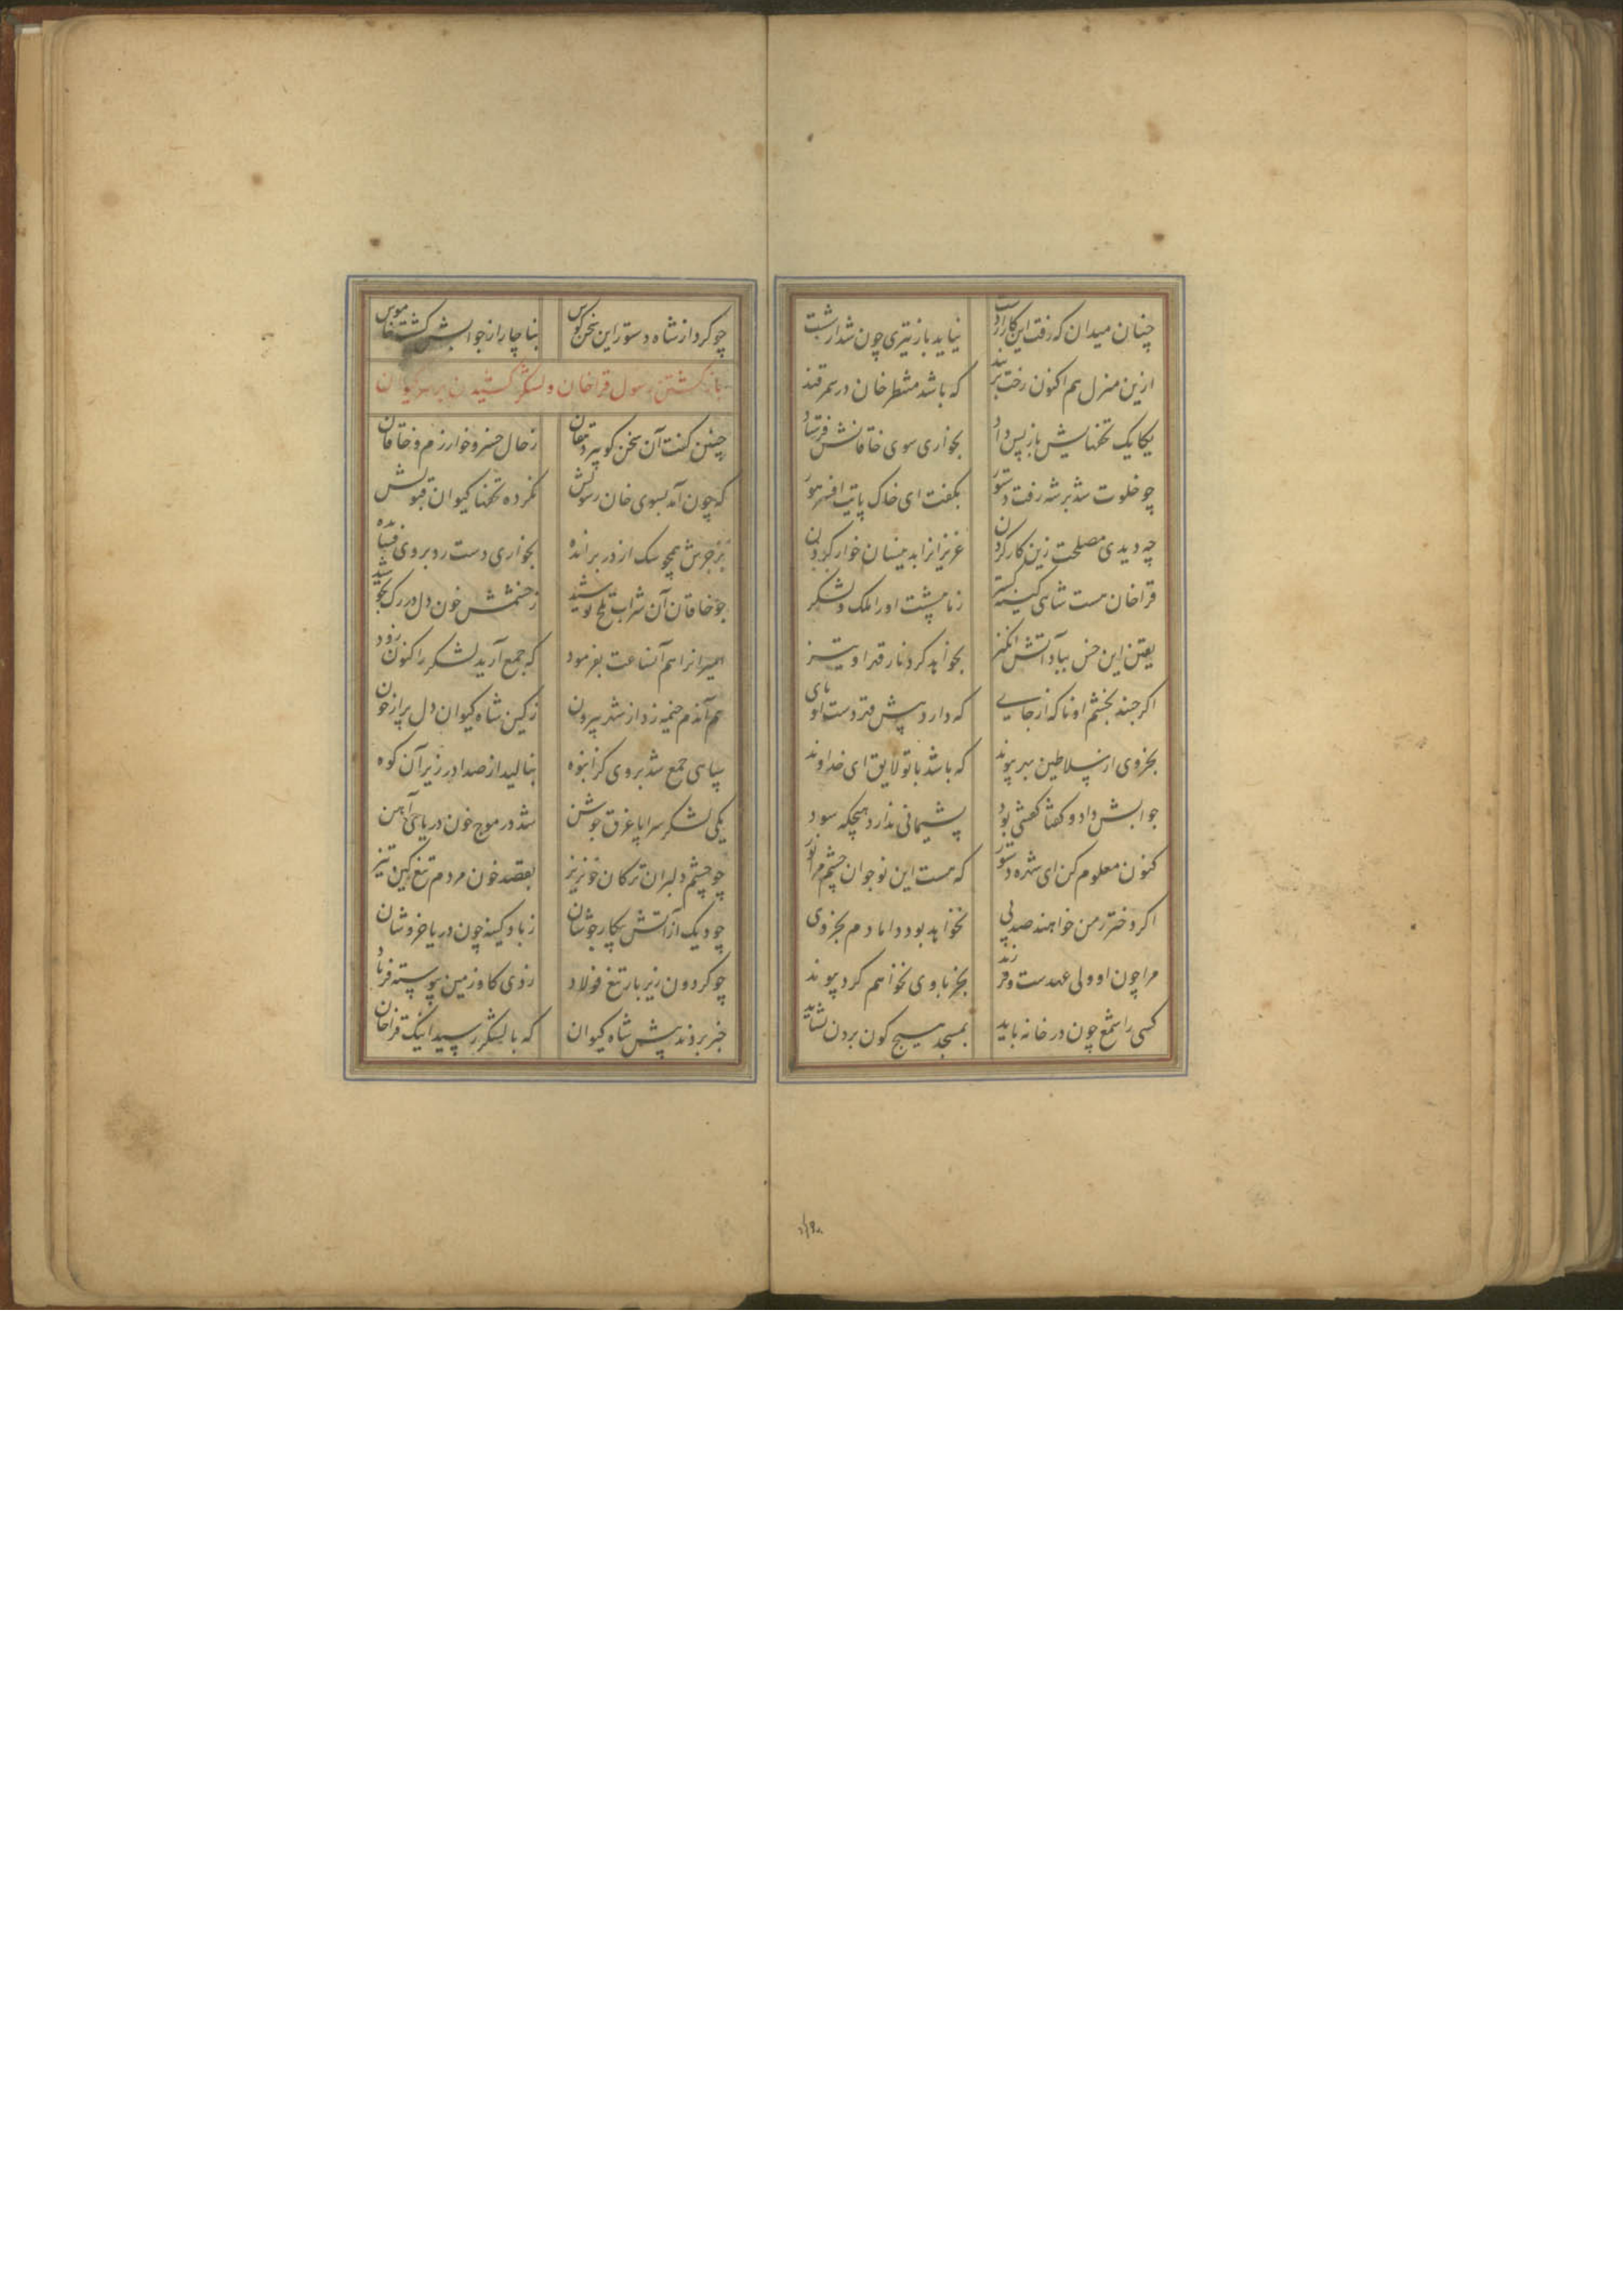 چنان میدان که رفت این کار از دست نیاید باز تیری چون شد از شست
ازین منزل هم اکنون رخت بربند که باشد منتظر خان در سمرقند
یکایک تحفهایش باز پس داد بخواری سوی خاقانش فرستاد
چو خلوت شد بر شه رفت دستور بگفت ای خاک پایت افسر تور
چه دیدی مصلحت زین کار کردن عزیزانرا بدینسان خوار کردن
قراخان هست شاهی کینه گستر زما بیشت اورا ملک و لشکر
یقین این خس بباد آتش انگیز بخواهد کرد نار قهر او تیز
اگر جنبد بخشم او ناگه از جای که دارد پیش قهر دست او پای
بخروی از سلاطین مهر پیوند که باشد با تو لایق ای خداوند
جوابش داد و گفتا گفتنی بود پشیمانی ندارد هیچگه سود
کنون معلوم کن ای شهره دستور که هست این نوجوان چشم مرا نور
اگر دختر ز من خواهند صد پی نخواهد بود دامادم بجز وی
مرا چون او ولی عهدست و فرزند بجز با وی نخواهم کرد پیوند
کسی را شمع چون در خانه باید بمسجد هیچ گون بردن نشاید
چو کرد از شاه دستور این سخن گوش بناچار از جوابش گشت خاموش
بازگشتن رسول قراخان و لشکر کشیدن بر سر کیوان
چنین گفت آن سخن گو پیر دهقان ز حال خسرو خوارزم و خاقان
که چون آمد بسوی خان رسولش نکرده تحفها کیوان قبولش
بزجرش همچو سگ از در برانده بخواری دست رد بر وی فشانده
چو خاقان آن شراب تلخ نوشید ز خشمش خون دل در رگ بجوشید
امیرانرا هم آنساعت بفرمود که جمع آرید لشکر را کنون زود
هم آندم خیمه زد از شهر بیرون ز کین شاه کیوان دل پر از خون
سپاهی جمع شد بر وی کز انبوه بنالید از صدا در زیر آن کوه
یکی لشکر سراپا غرق جوشن شد در موج خون دریای آهن
چو چشم دلبران ترکان خونریز بقصد خون مردم تیغ کین تیز
چو دیگ از آتش پیکار جوشان ز باد کینه چون دریا خروشان
چو گردون زیر بار تیغ فولاد زدی گاو زمین پیوسته فریاد
خبر بردند پیش شاه کیوان که با لشکر رسید اینک قراخان